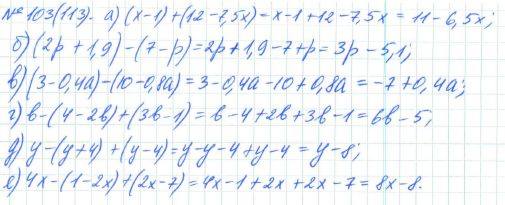 № 103(113). а) (x-1)+(12-7,5x)=x-1+12-7,5x = 11-6,5x;
б) (2p+1,9)-(7-p)=2p+1,9-7+p=3p-5,1;
в) (3-0,4a)-(10-0,8a)=3-0,4a-10+0,8a=-7+0,4a;
г) b-(4-2b)+(3b-1)=b-4+2b+3b-1=6b-5;
д) y-(y+4)+(y-4)=y-y-4+y-4=y-8;
е) 4x-(1-2x)+(2x-7)=4x-1+2x+2x-7=8x-8.